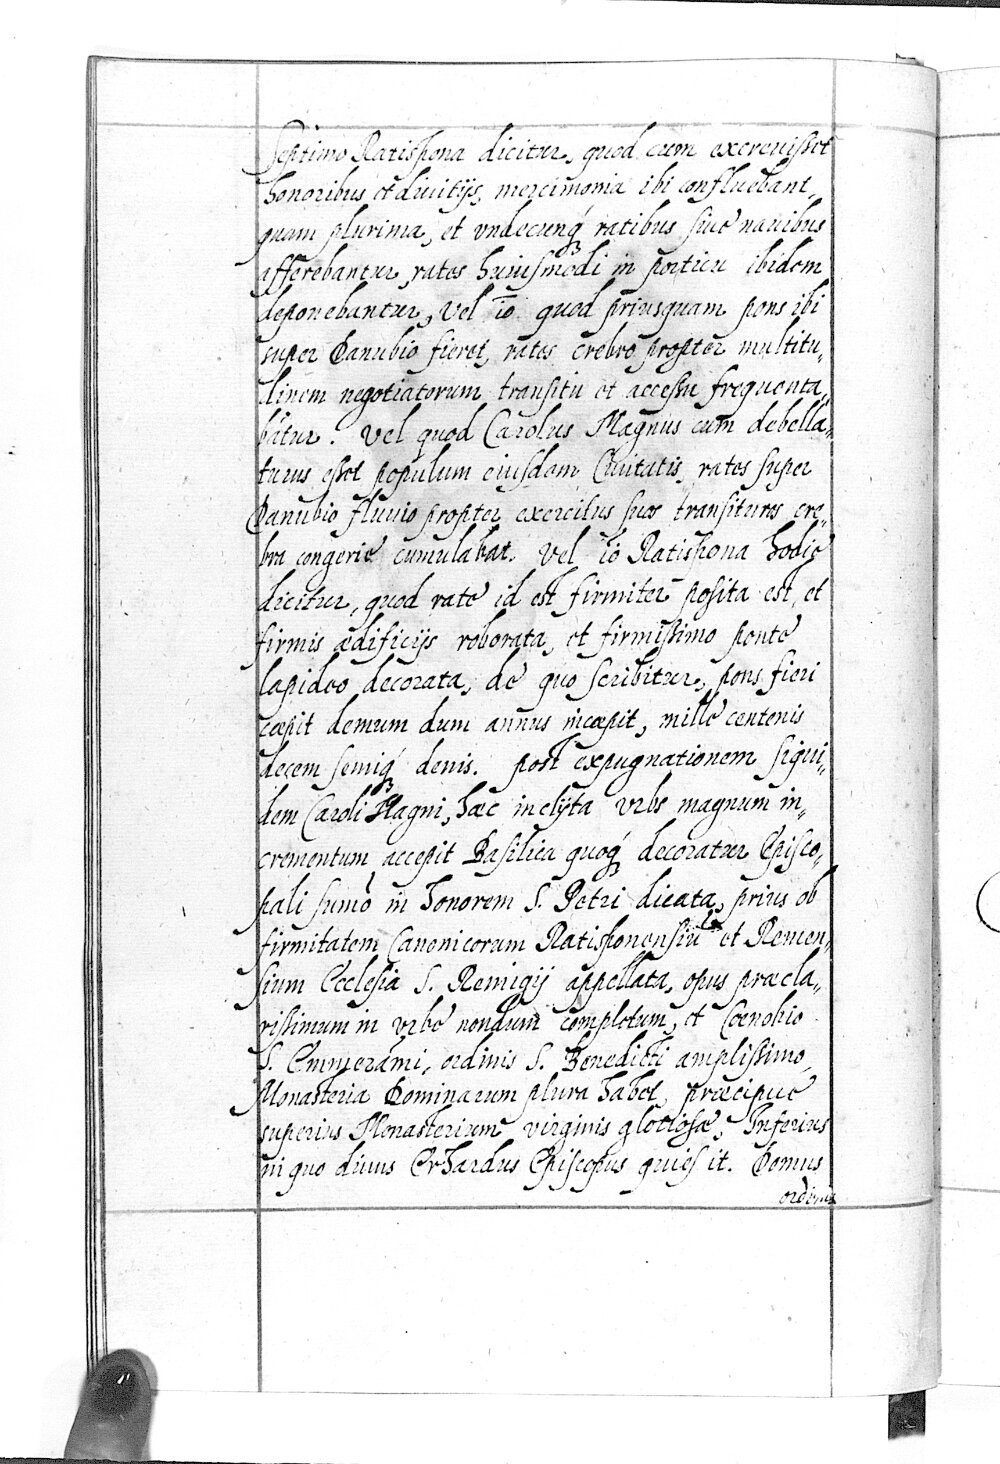 Septimo Ratispona dicitur, quod cum excrevisset
honoribus et divitijs, mercimonia ibi confluebant,
quam plurima, et undecunq́ʒ ratibus sive navibus
afferebantur, rates huiusmodi in porticu ibidem
deponebantur, Vel iō quod priusquam pons ibi
super Danubio fieret, rates crebro propter multitu„
dinem negotiatorum transitu et accessu frequenta„
batur. Vel quod Carolus Magnus cum debella„
turus esset populum eiusdem Civitatis, rates super
Danubio fluvio propter exercitus suos transituros cre„
bra congerie cumulabat. Vel iō Ratispona hodie
dicitur, quod rate id est firmiter posita est, et
firmis ædificijs roborata, et firmissimo ponte
lapideo decorata, de quo scribitur, pons fieri
cœpit demum dum annus incœpit, mille centenis
decem semiq́ʒ denis. post expugnationem siqui„
dem Caroli Magni, hæc inclÿta urbs magnum in„
crementum accepit Basilica quoq́ʒ decoratur Episco„
pali sumō in honorem S. Petri dicata, prius ob
firmitatem Canonicorum Ratisponensiū et Remen„
sium Ecclesia S. Remigij appellata, opus præcla„
rissimum in urbe nondum completum, et Cœnobio
S. Emmerami, ordinis S. Benedicti amplissimo,
Monasteria Dominarum plura habet, præcipue
superius Monasterium virginis gloriosæ, Inferius
in quo divus Erhardus Episcopus quiescit. Domus
ordinis